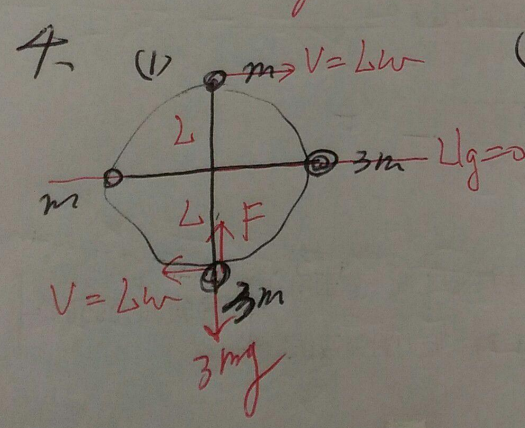 4、 (1)
m V = Lω
L
m
3m Ug=0
L F
V = Lω 3m
3mg